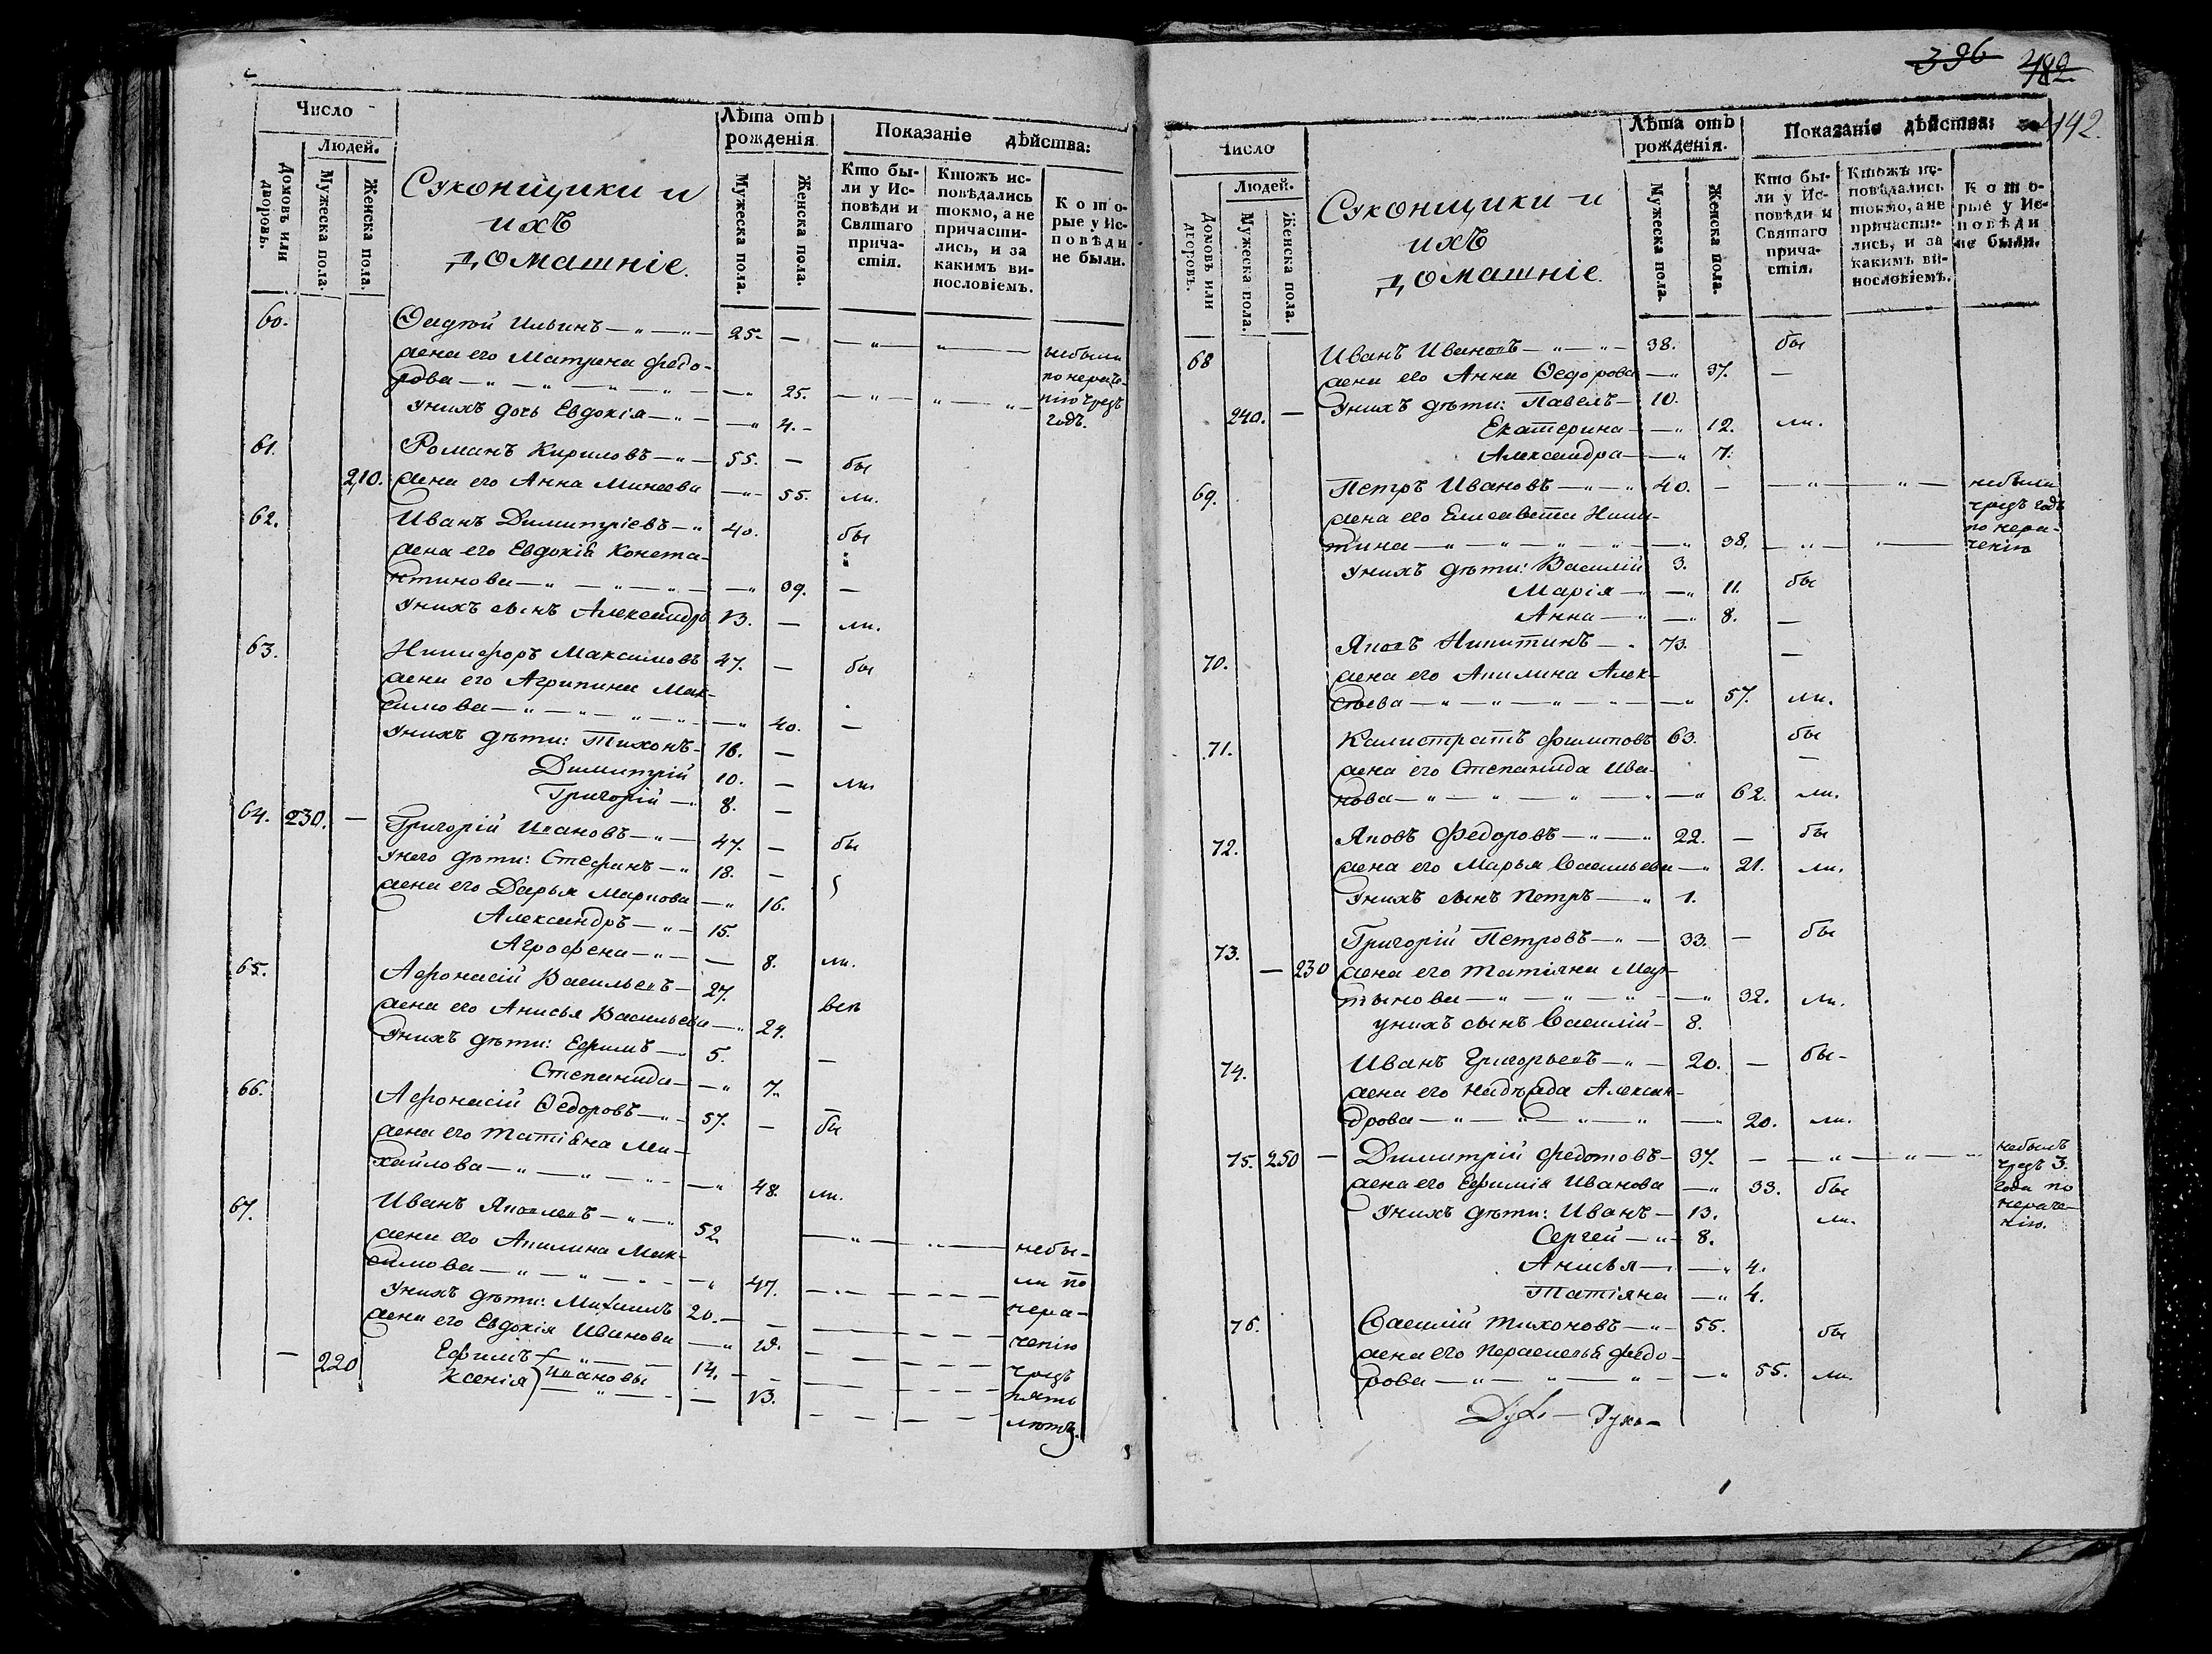 Число
Людей.
Домовъ или дворовъ.
Мужеска пола.
Женска пола.
Суконщики и
ихъ
домашніе.
Лѣта отъ рожденія
Мужеска пола.
Женска пола.
Показаніе дѣйства:
Кто бы-
ли у Ис-
повѣди и
Святаго
прича-
стія.
Ктожъ ис-
повѣдались
токмо, а не
причасти-
лись, и за
какимъ ви-
нословіемъ.
Кото-
рые у Ис-
повѣди
не были.
60. Ѳедотъ Ильинъ — 25. — небыли
жена его Матрена Федо- по нераче-
рова — 25. нію чрезъ
у нихъ дочь Евдокія — 4. годъ.
61. Романъ Кириловъ — 55. — бы
210. жена его Анна Минеева — 55. ли.
62. Иванъ Димитріевъ — 40. бы
жена его Евдокія Конста-
нтинова — 39. —
у нихъ сынъ Александръ 13. — ли.
63. Никифоръ Максимовъ 47. — бы
жена его Агрипина Мак-
симова — 40. —
у нихъ дѣти: Тихонъ 16. —
Димитрій 10. — ли.
Григорій — 8. —
64. 230. — Григорій Ивановъ — 47. — бы
у него дѣти: Стефанъ — 18. —
жена его Дарья Маркова — 16.
Александръ — 15.
Агрофена — 8. ли.
65. Афонасій Васильевъ — 27.
жена его Анисья Васильева — 24.
у нихъ дѣти: Ефимъ — 5. —
Степанида — 7.
66. Афонасій Ѳедоровъ — 57. — бы
жена его Татіана Ми-
хайлова — 48. ли.
67. Иванъ Яковлевъ — 52. небы-
жена его Акилина Мак-
симова — 47. ли по
у нихъ дѣти: Михаилъ 20. — нера-
жена его Евдокія Иванова — 19. ченію
Ефимъ 14. — чрезъ
— 220 Ксенія } Ивановы — 13. пять
лѣтъ.
396 482
442.
Число
Людей.
Домовъ или дворовъ.
Мужеска пола.
Женска пола.
Суконщики и
ихъ
домашніе.
Лѣта отъ рожденія.
Мужеска пола.
Женска пола.
Показаніе дѣйства:
Кто бы-
ли у Ис-
повѣди и
Святаго
прича-
стія.
Ктожъ ис-
повѣдались
токмо, а не
причасти-
лись, и за
какимъ ви-
нословіемъ.
Кото-
рые у Ис-
повѣди
не были.
68 Иванъ Ивановъ — 38. бы
жена его Анна Ѳедорова — 37. —
240. — у нихъ дѣти: Павелъ — 10.
Екатерина — 12. ли.
Александра — 7.
69. Петръ Ивановъ — 40. — небыли
жена его Елисавета Ники- чрезъ годъ
тина — 38. по нера-
ченію
у нихъ дѣти: Василій 3.
Марія — 11. бы
Анна — 8. —
70. Яковъ Никитинъ — 73. —
жена его Акилина Алек-
сѣева — 57. ли.
71. Калистратъ Филиповъ 63. бы
жена его Степанида Ива- —
нова — 62. ли.
72. Яковъ Федоровъ — 22. — бы
жена его Марья Васильева — 21. ли.
у нихъ сынъ Петръ — 1.
73. Григорій Петровъ — 33. — бы
— 230 жена его Татіяна Мар-
тынова — 32. ли.
у нихъ сынъ Василій — 8.
74. Иванъ Григорьевъ — 20. — бы-
жена его Надѣжда Алексан-
дрова — 20. ли.
75. 250 — Димитрій Федотовъ — 37. — небылъ
чрезъ 3.
жена его Ефимія Иванова — 33. бы года по
у нихъ дѣти: Иванъ — 13. ли. нераче-
нію.
Сергей — 8.
Анисья — 4.
Татіяна — 4.
76. Василій Тихоновъ — 55. бы
жена его Параскевья Федо-
рова — 55. ли.